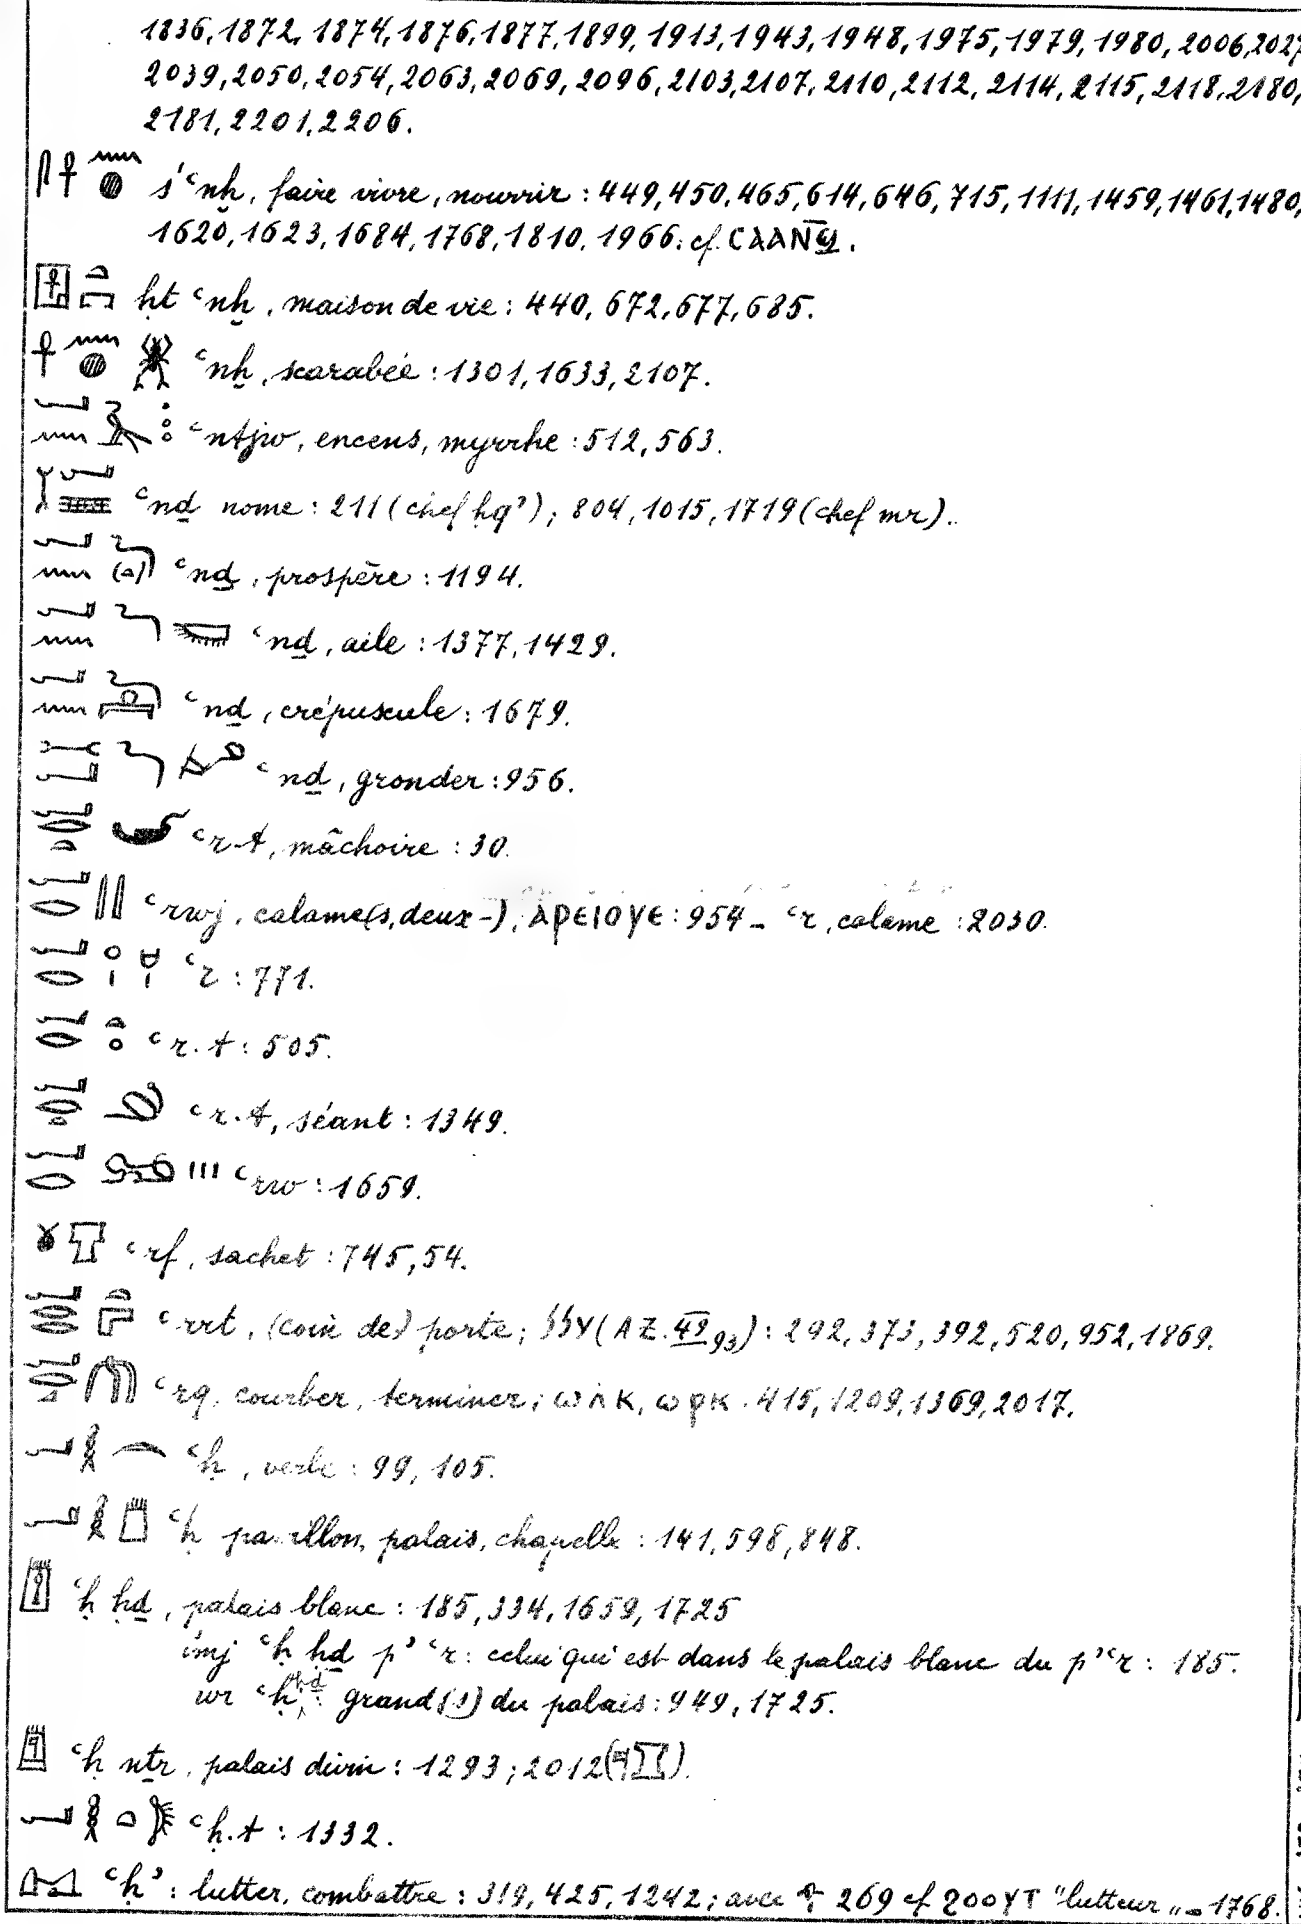 1836, 1872, 1874, 1876, 1877, 1899, 1913, 1943, 1948, 1975, 1979, 1980, 2006, 2027
2039, 2050, 2054, 2063, 2069, 2096, 2103, 2107, 2110, 2112, 2114, 2115, 2118, 2180,
2181, 2201, 2206.
śꜥnḫ, faire vivre, nourrir : 449, 450, 465, 614, 646, 715, 1111, 1459, 1461, 1480,
1620, 1623, 1684, 1768, 1810, 1966. cf. ⲤⲀⲀⲚϢ̅.
ḥt ꜥnḫ, maison de vie : 440, 672, 677, 685.
ꜥnḫ, scarabée : 1301, 1633, 2107.
ꜥntjw, encens, myrrhe : 512, 563.
ꜥnḏ nome : 211 (chef ḥqꜣ) ; 804, 1015, 1719 (chef mr).
ꜥnḏ, prospère : 1194.
ꜥnḏ, aile : 1377, 1429.
ꜥnḏ, crépuscule : 1679.
ꜥnḏ, gronder : 956.
ꜥr.t, mâchoire : 30.
ꜥrwj, calame(s, deux –), ⲀⲢⲈⲒⲞⲨⲈ : 954 – ꜥr, calame : 2030.
ꜥr : 771.
ꜥr.t : 505.
ꜥr.t, séant : 1349.
ꜥrw : 1659.
ꜥrf, sachet : 745, 54.
ꜥrrt, (coin de) porte ; (AZ. 49, 93) : 292, 373, 392, 520, 952, 1869.
ꜥrq, courber, terminer ; ⲱⲗⲕ, ⲱⲣⲕ . 415, 1209, 1369, 2017.
ꜥḥ, verbe : 99, 105.
ꜥḥ pavillon, palais, chapelle : 141, 598, 848.
ꜥḥ ḥḏ, palais blanc : 185, 334, 1659, 1725
imj ꜥḥ ḥḏ pꜣ ꜥr : celui qui est dans le palais blanc du pꜣꜥr : 185.
wr ꜥḥ ḥḏ : grand(s) du palais : 949, 1725.
ꜥḥ nṯr, palais divin : 1293 ; 2012
ꜥḥ.t : 1332.
ꜥḥꜣ : lutter, combattre : 319, 425, 1242 ; avec 269 cf ϨⲞⲞⲨⲦ "lutteur" – 1768.